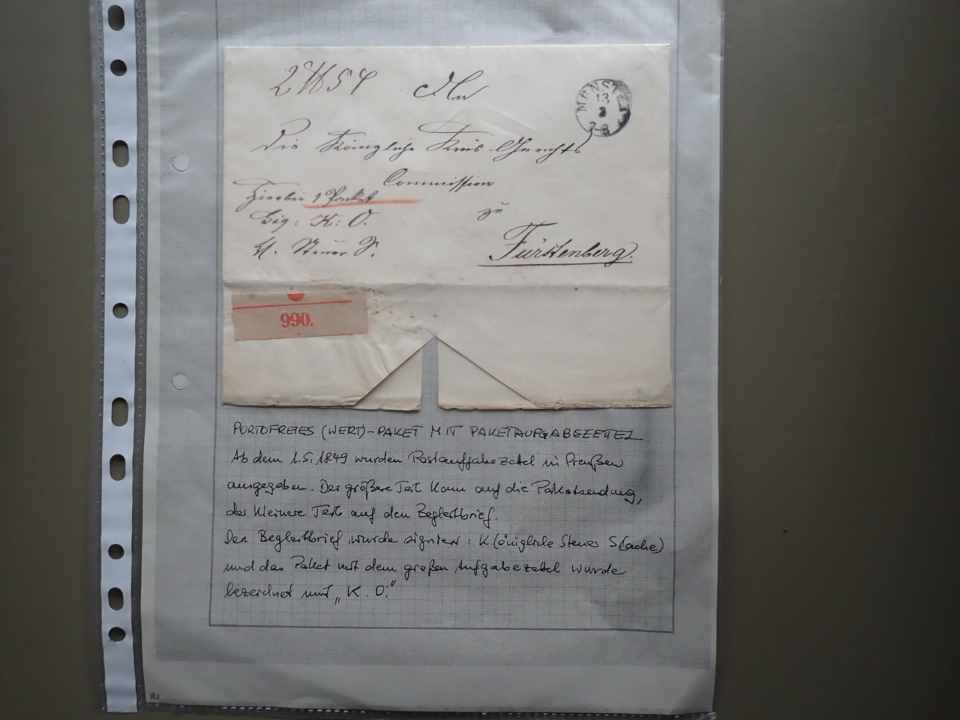 2 54 An
MÜNSTER
13
3
2-3
Die Königliche Kreis Gerichts
Commission
Hierbei 1 Paket
Sig: K: O.
zu
K. Steuer S.
Fürstenberg.
990.
PORTOFREIES (WERT)-PAKET MIT PAKETAUFGABEZETTEL
Ab dem 1.5.1849 wurden Postaufgabezettel in Preußen
ausgegeben. Der größere Teil kam auf die Paketsendung,
der kleinere Teil auf den Begleitbrief.
Der Begleitbrief wurde signiert: K(önigliche Steuer S(ache)
und das Paket mit dem großen Aufgabezettel wurde
bezeichnet mit „K. O."